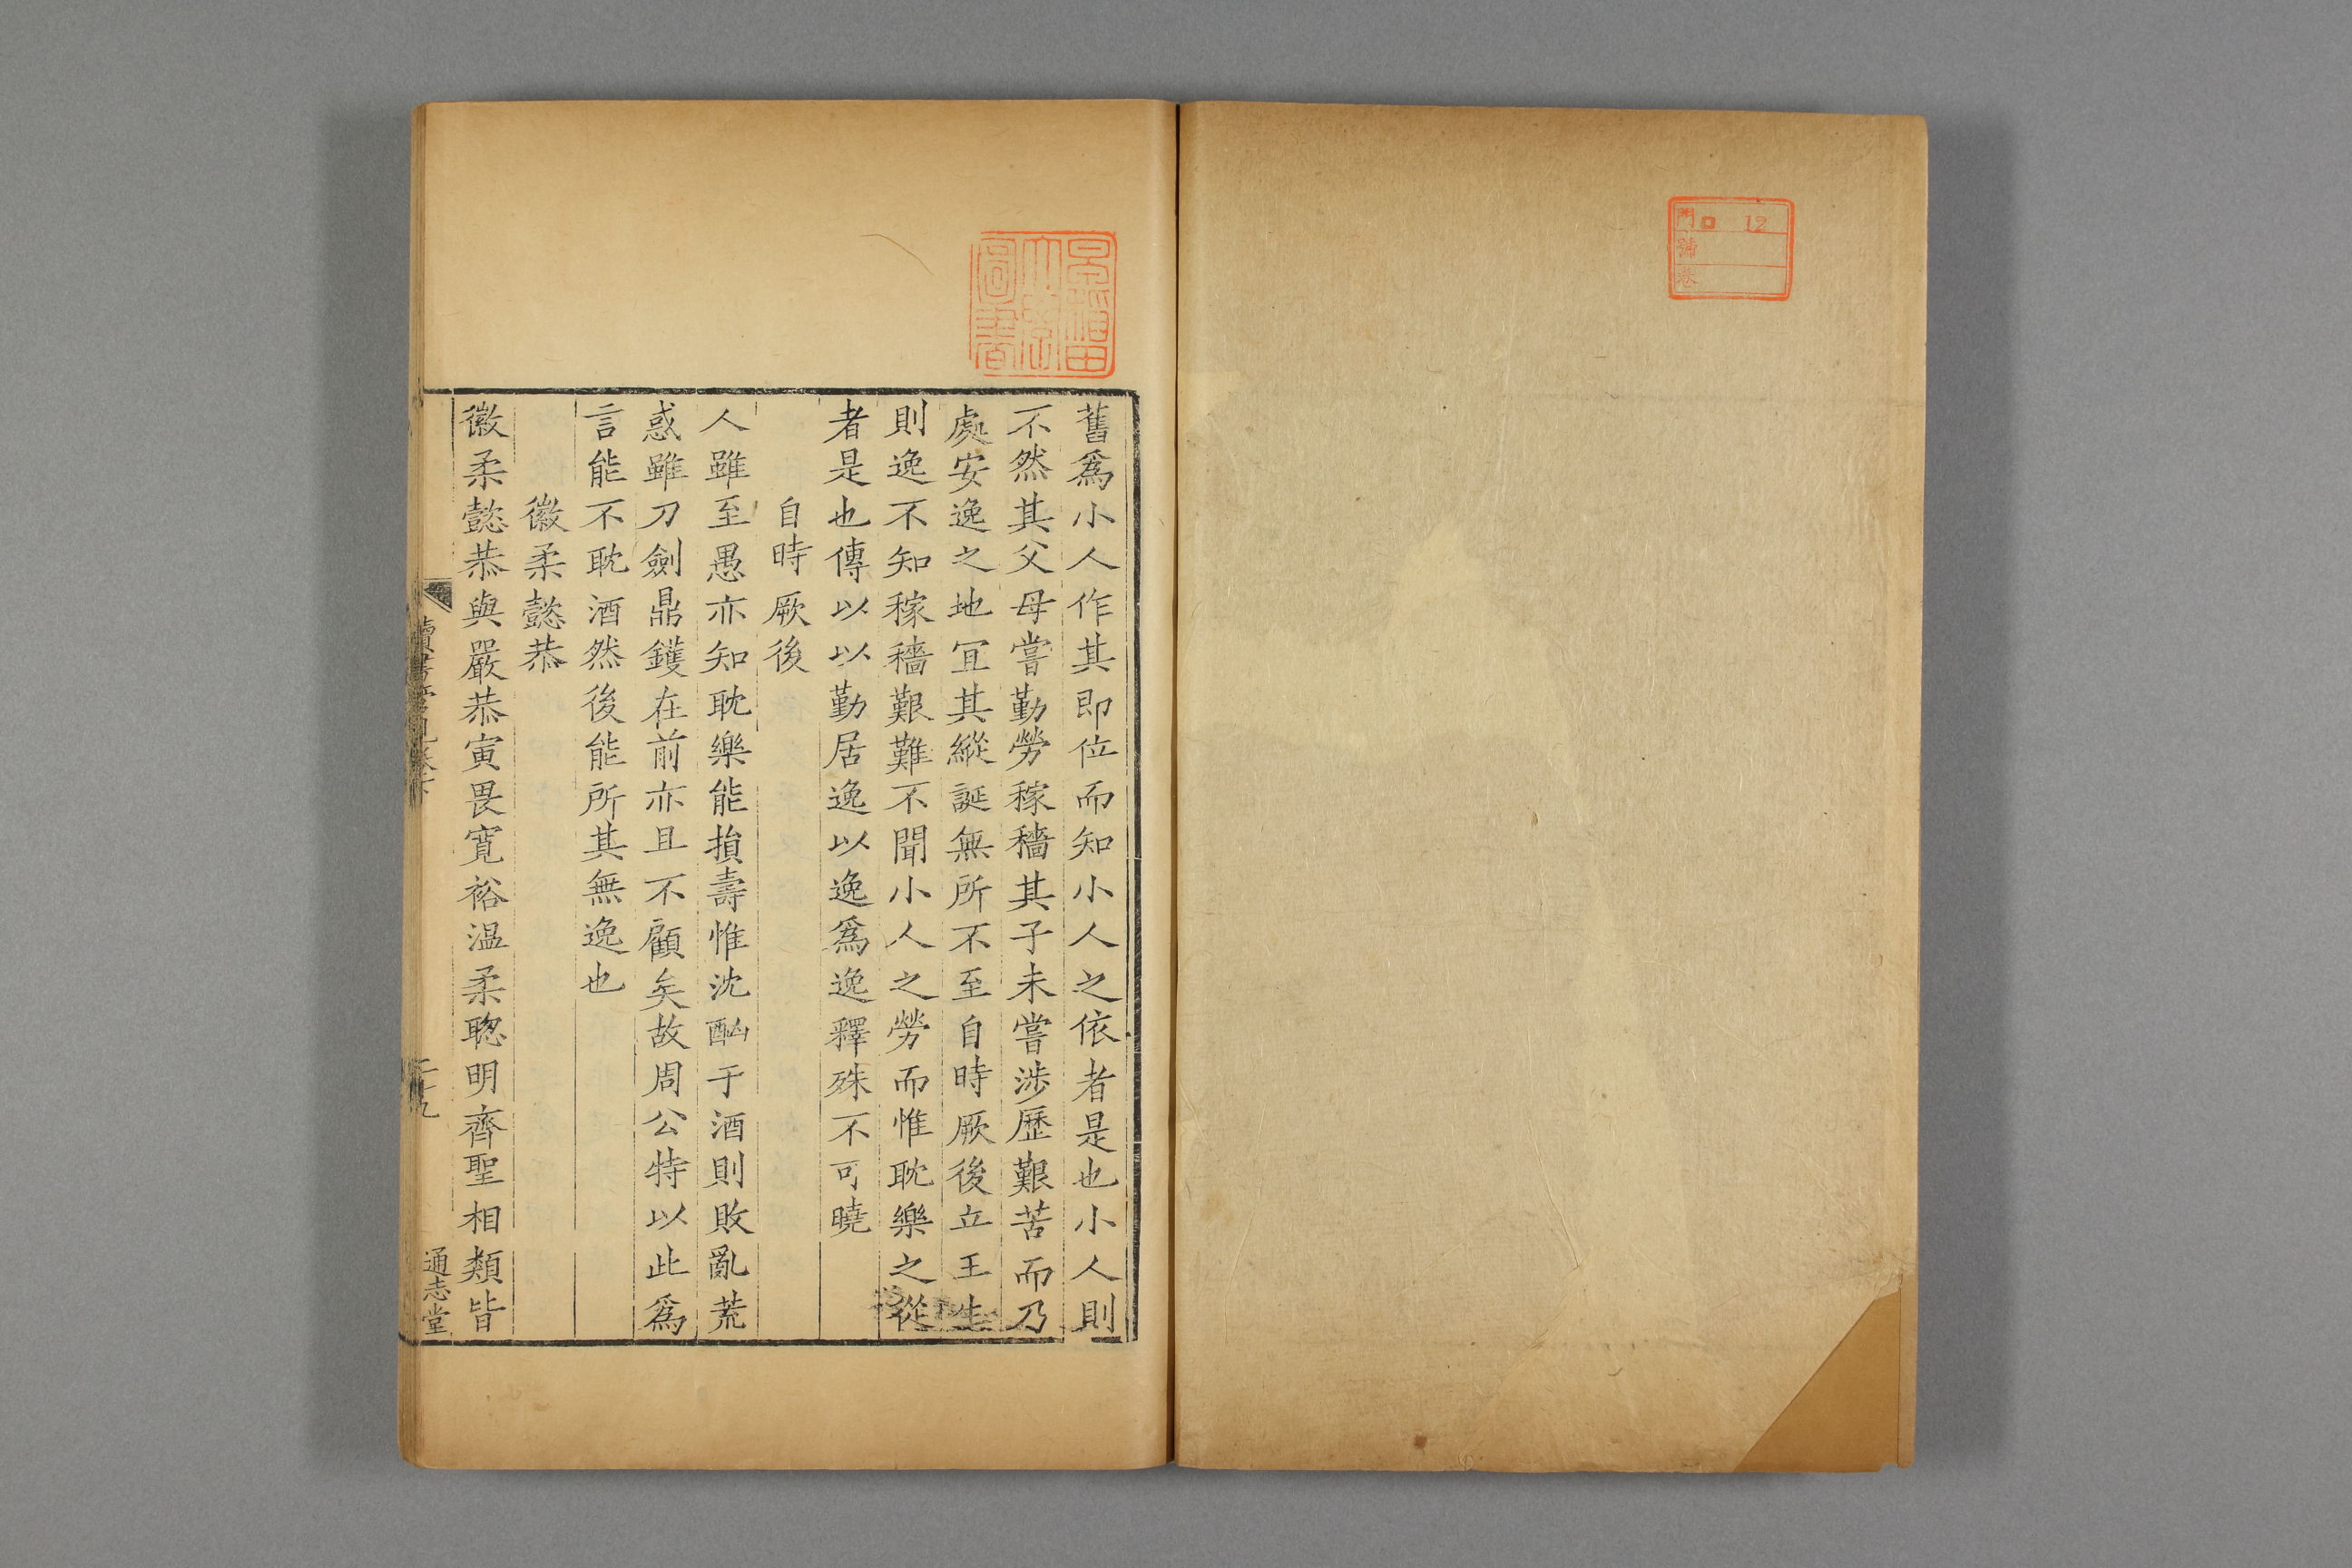 門 12
號
卷
早稻田
大學
圖書
舊爲小人作其即位而知小人之依者是也小人則
不然其父母嘗勤勞稼穡其子未嘗涉歷艱苦而乃
處安逸之地宜其縱誕無所不至自時厥後立王生
則逸不知稼穡艱難不聞小人之勞而惟耽樂之從
者是也傳以以勤居逸以逸爲逸釋殊不可曉
自時厥後
人雖至愚亦知耽樂能損壽惟沈酗于酒則敗亂荒
惑雖刀劍鼎鑊在前亦且不顧矣故周公特以此爲
言能不耽酒然後能所其無逸也
徽柔懿恭
徽柔懿恭與嚴恭寅畏寬裕温柔聰明齊聖相類皆
讀書管見卷下
二十九
通志堂